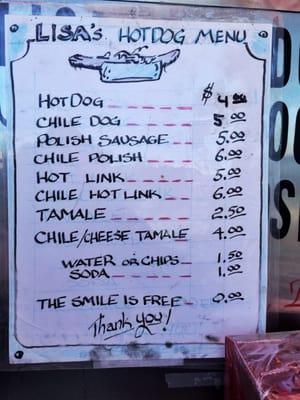 LISA'S HOTDOG MENU
HOTDOG $ 4.00
CHILE DOG 5.00
POLISH SAUSAGE 5.00
CHILE POLISH 6.00
HOT LINK 5.00
CHILE HOT LINK 6.00
TAMALE 2.50
CHILE/CHEESE TAMALE 4.00
WATER OR CHIPS 1.50
SODA 1.00
THE SMILE IS FREE 0.00
Thank you!